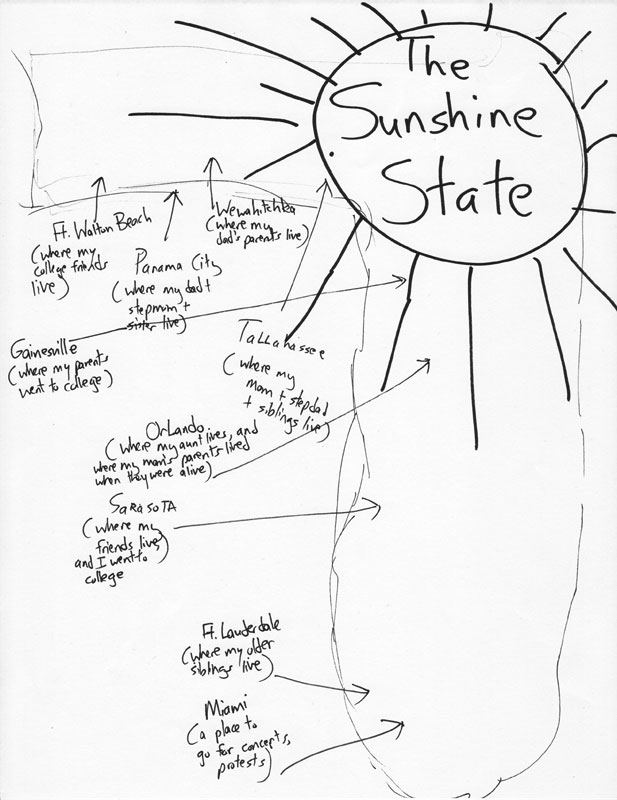 The
Sunshine
State
Ft. Walton Beach
(where my
college friends
live)
Panama City
(where my dad +
stepmom +
sister live)
Wewahitchka
(where my
dad's parents live)
Gainesville
(where my parents
went to college)
Tallahassee
(where my
mom + stepdad
+ siblings live)
Orlando
(where my aunt lives, and
where my mom's parents lived
when they were alive)
Sarasota
(where my
friends live,
and I went to
college
Ft. Lauderdale
(where my older
siblings live)
Miami
(a place to
go for concepts,
protests)